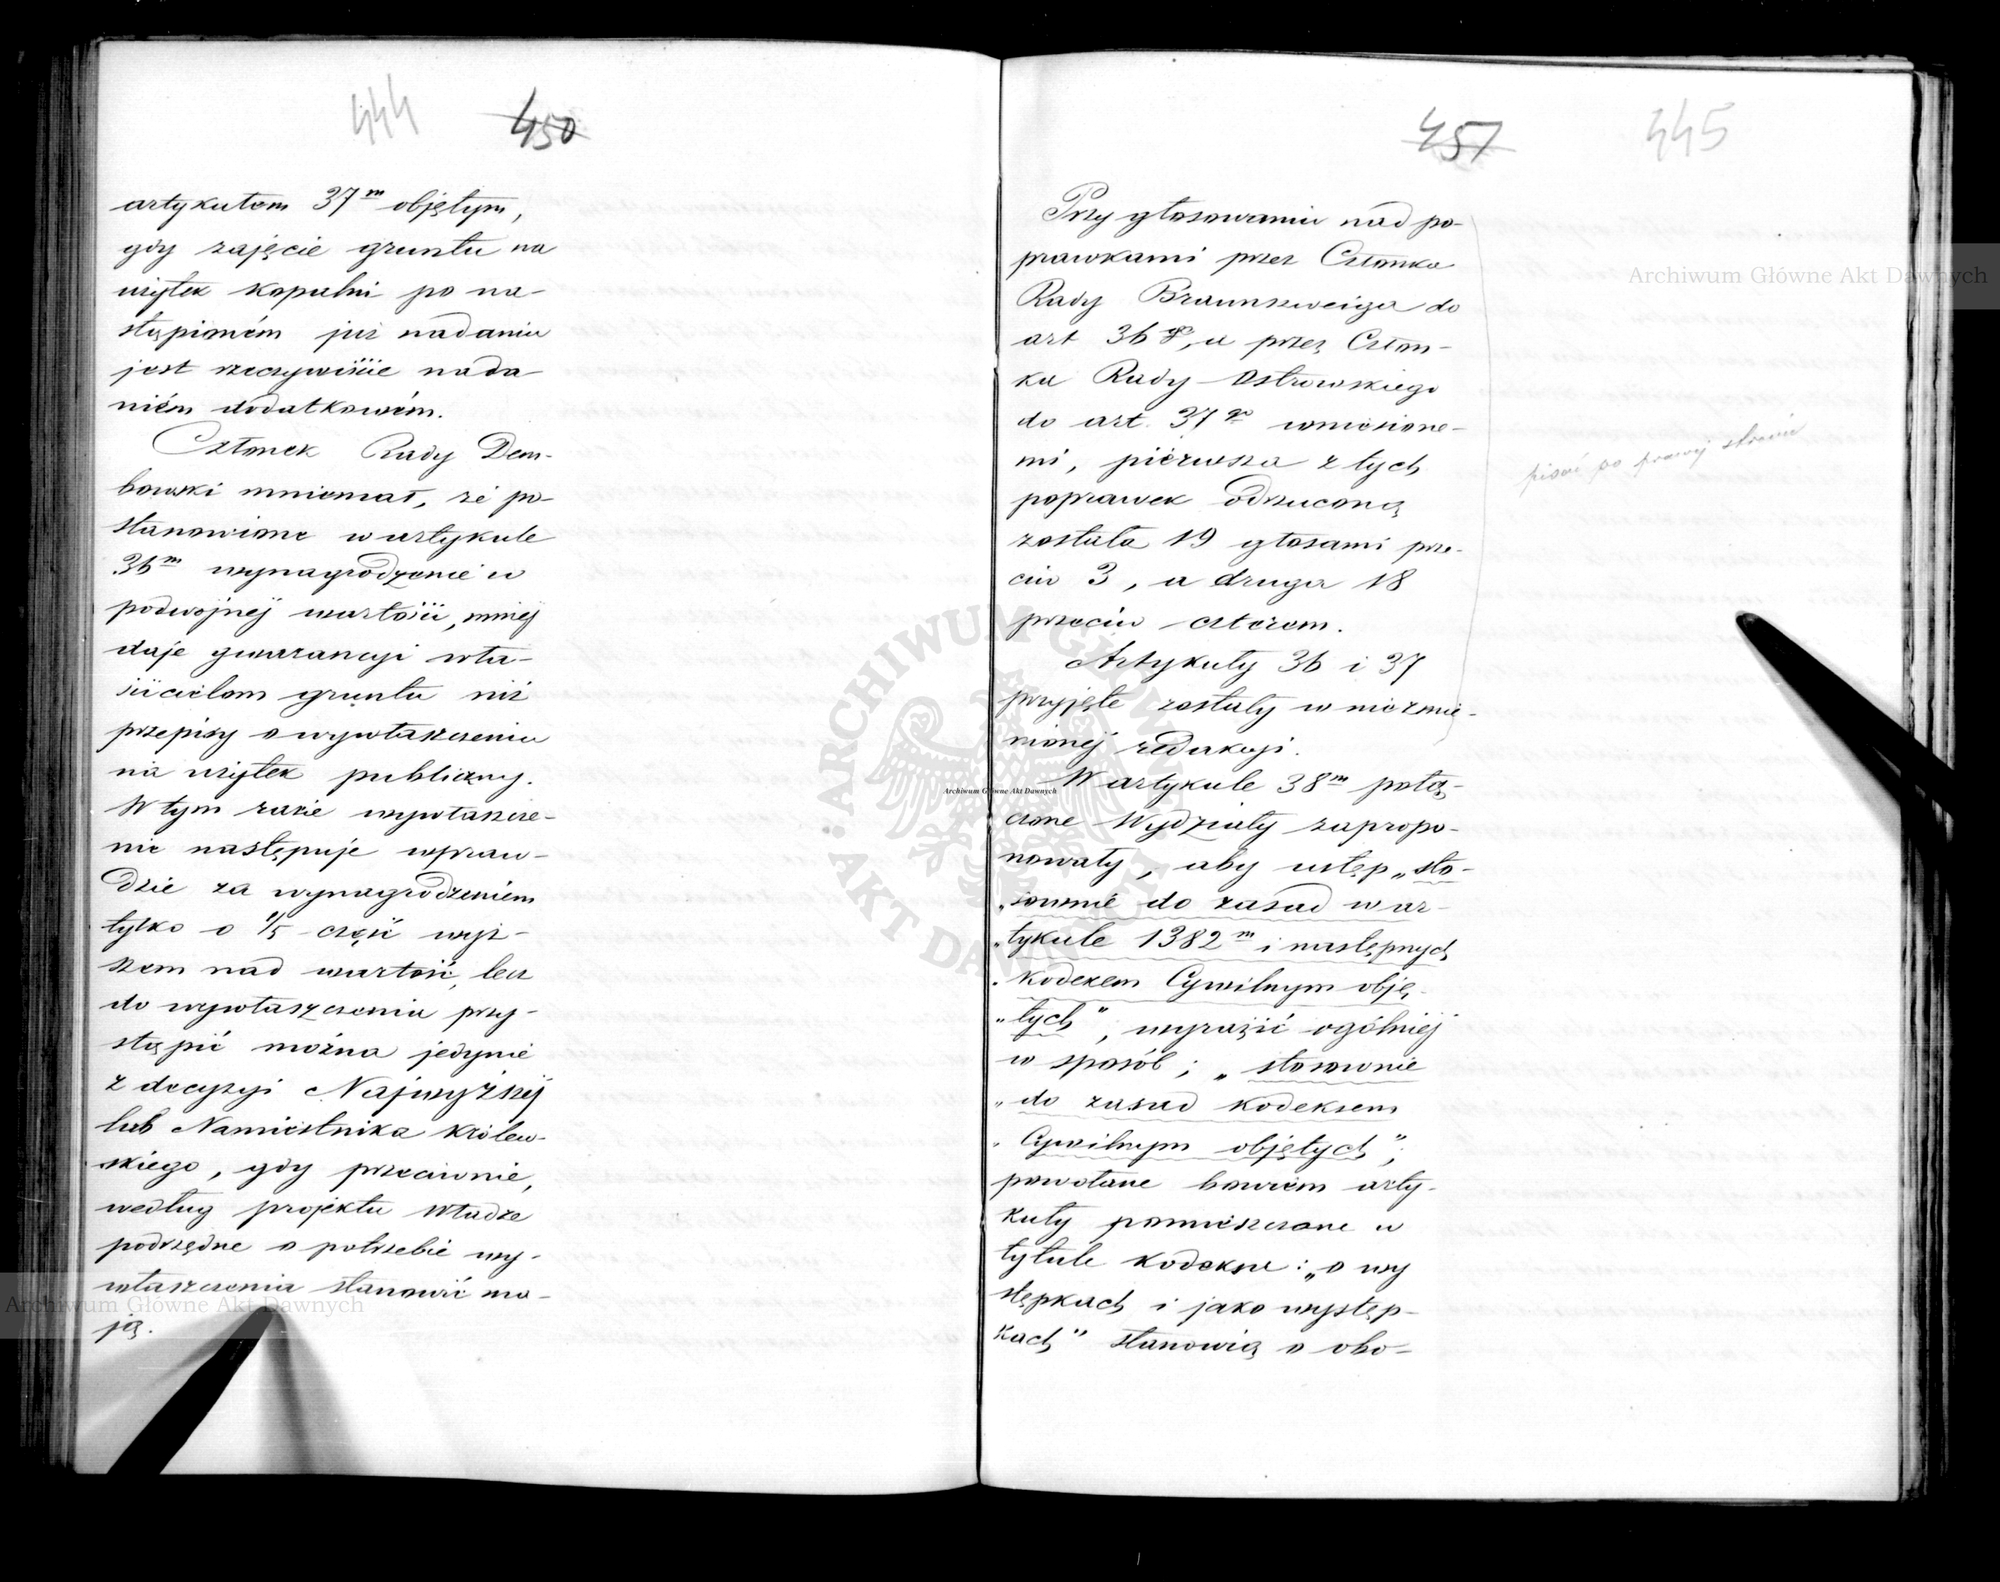 444 450
artykułem 37m objętym,
gdy zajęcie gruntu na
użytek kopalni po na-
stąpioném już nadaniu
jest rzeczywiście nada-
niém dodatkowém.
Członek Rady Dem-
bowski mniemał, że po-
stanowione w artykule
36m wynagrodzenie w
podwójnéj wartości, mniéj
daje gwarancyi wła-
ścicielom gruntu niż
przepisy o wywłaszczeniu
na użytek publiczny.
W tym razie wywłaszcze-
nie następuje wpraw-
dzie za wynagrodzeniem
tylko o 1/5 część wyż-
szem nad wartość, lecz
do wywłaszczenia przy-
stąpić można jedynie
z decyzyi Najwyższéj
lub Namiestnika Królew-
skiego, gdy przeciwnie,
według projektu Władze
podrzędne o potrzebie wy-
właszczenia stanowić ma-
ją.
451 445
Przy głosowaniu nad po-
prawkami przez Członka
Rady Braunszweiga do
art 36go, a przez Człon-
ka Rady Ostrowskiego
do art. 37go wniesione-
mi, piérwsza z tych
poprawek odrzuconą
została 19 głosami prze-
ciw 3, a druga 18
przeciw czterem.
Artykuły 36 i 37
przyjęte zostały w niezmie-
nionéj redakcyi.
W artykule 38m połą-
czone Wydziały zapropo-
nowały, aby ustęp „sto-
„sownie do zasad w ar-
„tykule 1382m i następnych
„Kodexem Cywilnym obję-
„tych", wyrazić ogólniéj
w sposób; „stosownie
„do zasad kodeksem
„Cywilnym objętych";
powołane bowiem arty-
kuły pomieszczone w
tytule kodeksu: „o wy
stępkach i jako występ-
kach" stanowią o obo-
pisać po prawej stronie
Archiwum Główne Akt Dawnych
Archiwum Główne Akt Dawnych
ARCHIWUM GŁÓWNE AKT DAWNYCH
Archiwum Główne Akt Dawnych